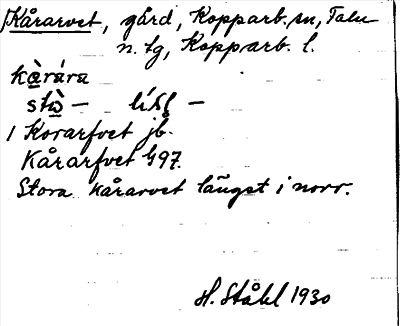 Kårarvet, gård, Kopparb. sn, Falu
n. tg, Kopparb. l.
kàrára
stò – líhl –
1 Korarfvet jb.
Kårarfvet G97.
Stora Kårarvet längst i norr.
H. Ståhl 1930